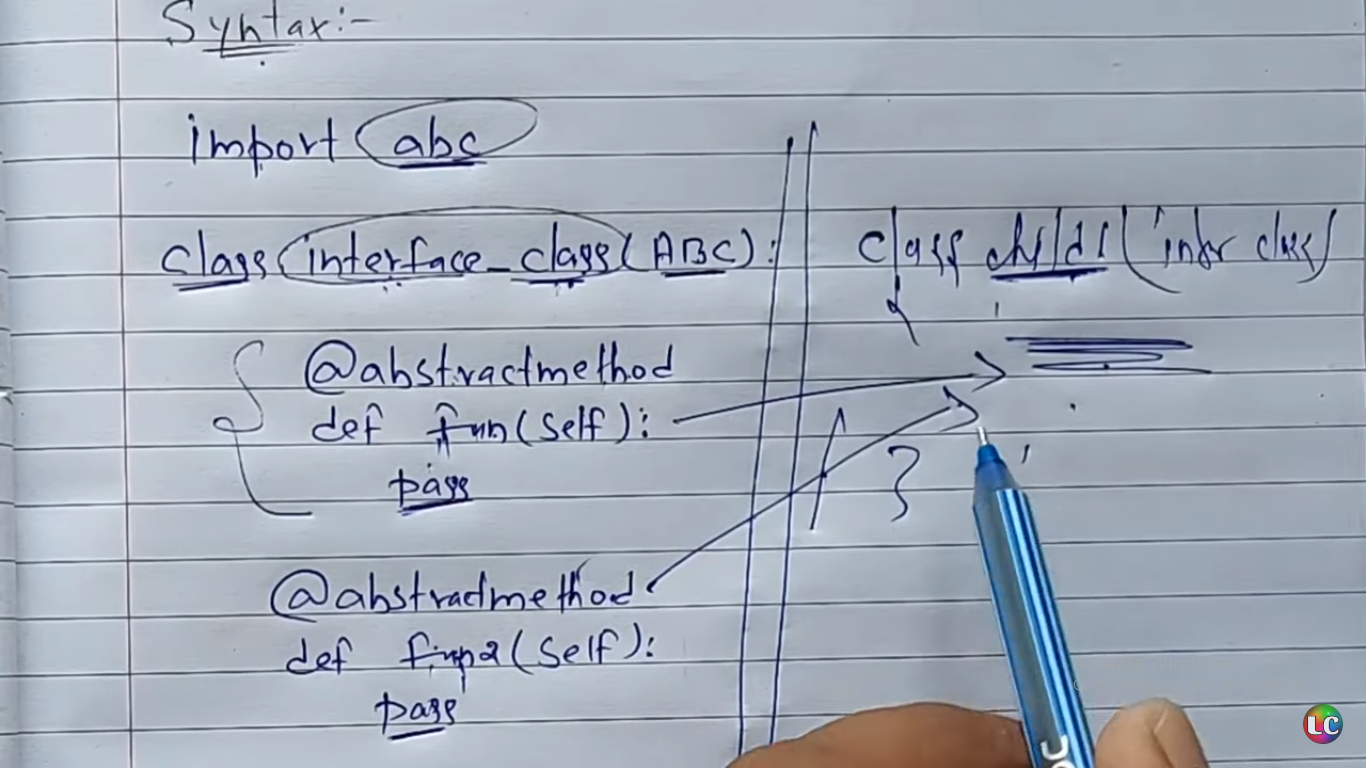 Syntax:-
import abc
class interface_class(ABC):
@abstractmethod
def fun(self):
pass
@abstractmethod
def fun2(self):
pass
class child1(inter class)
{
}
LC